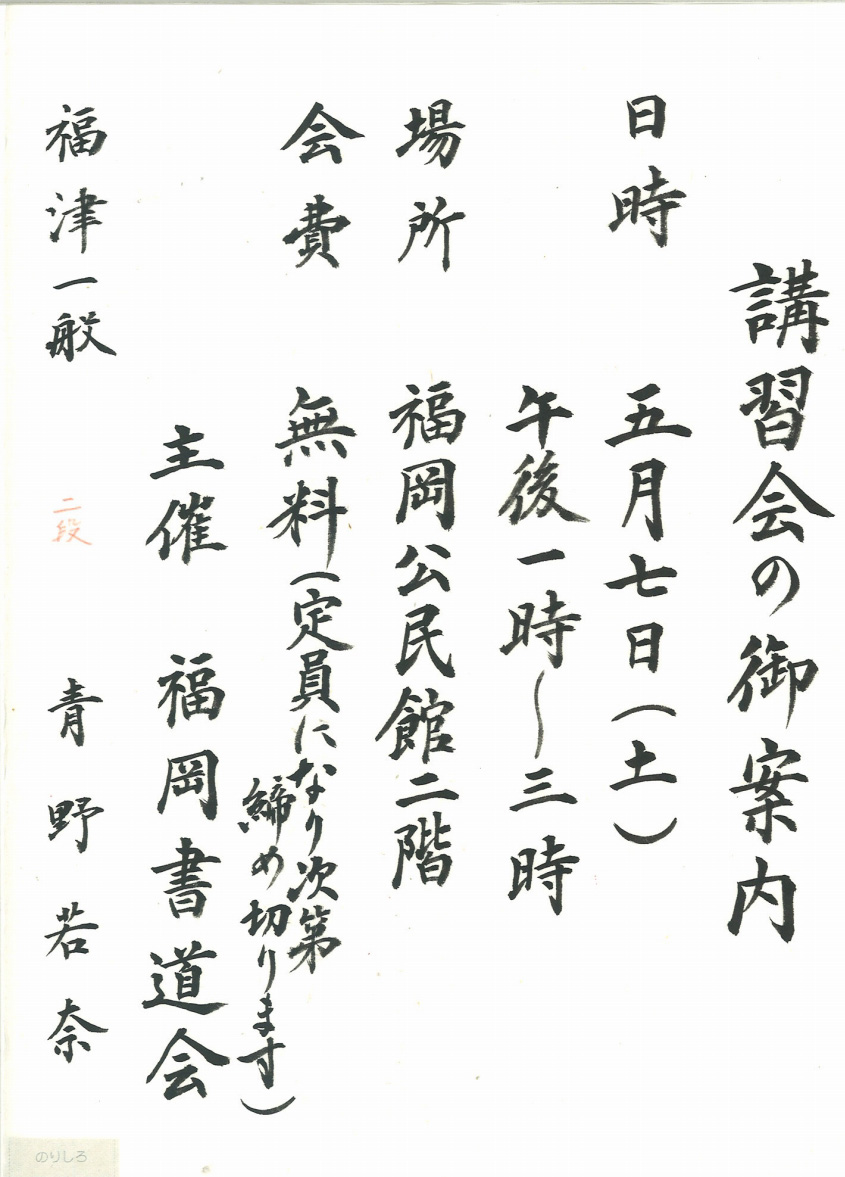 講習会の御案内
日時　五月七日（土）
午後一時〜三時
場所　福岡公民館二階
会費　無料（定員になり次第
締め切ります）
主催　福岡書道会
福津一般　二段　青野若奈
のりしろ